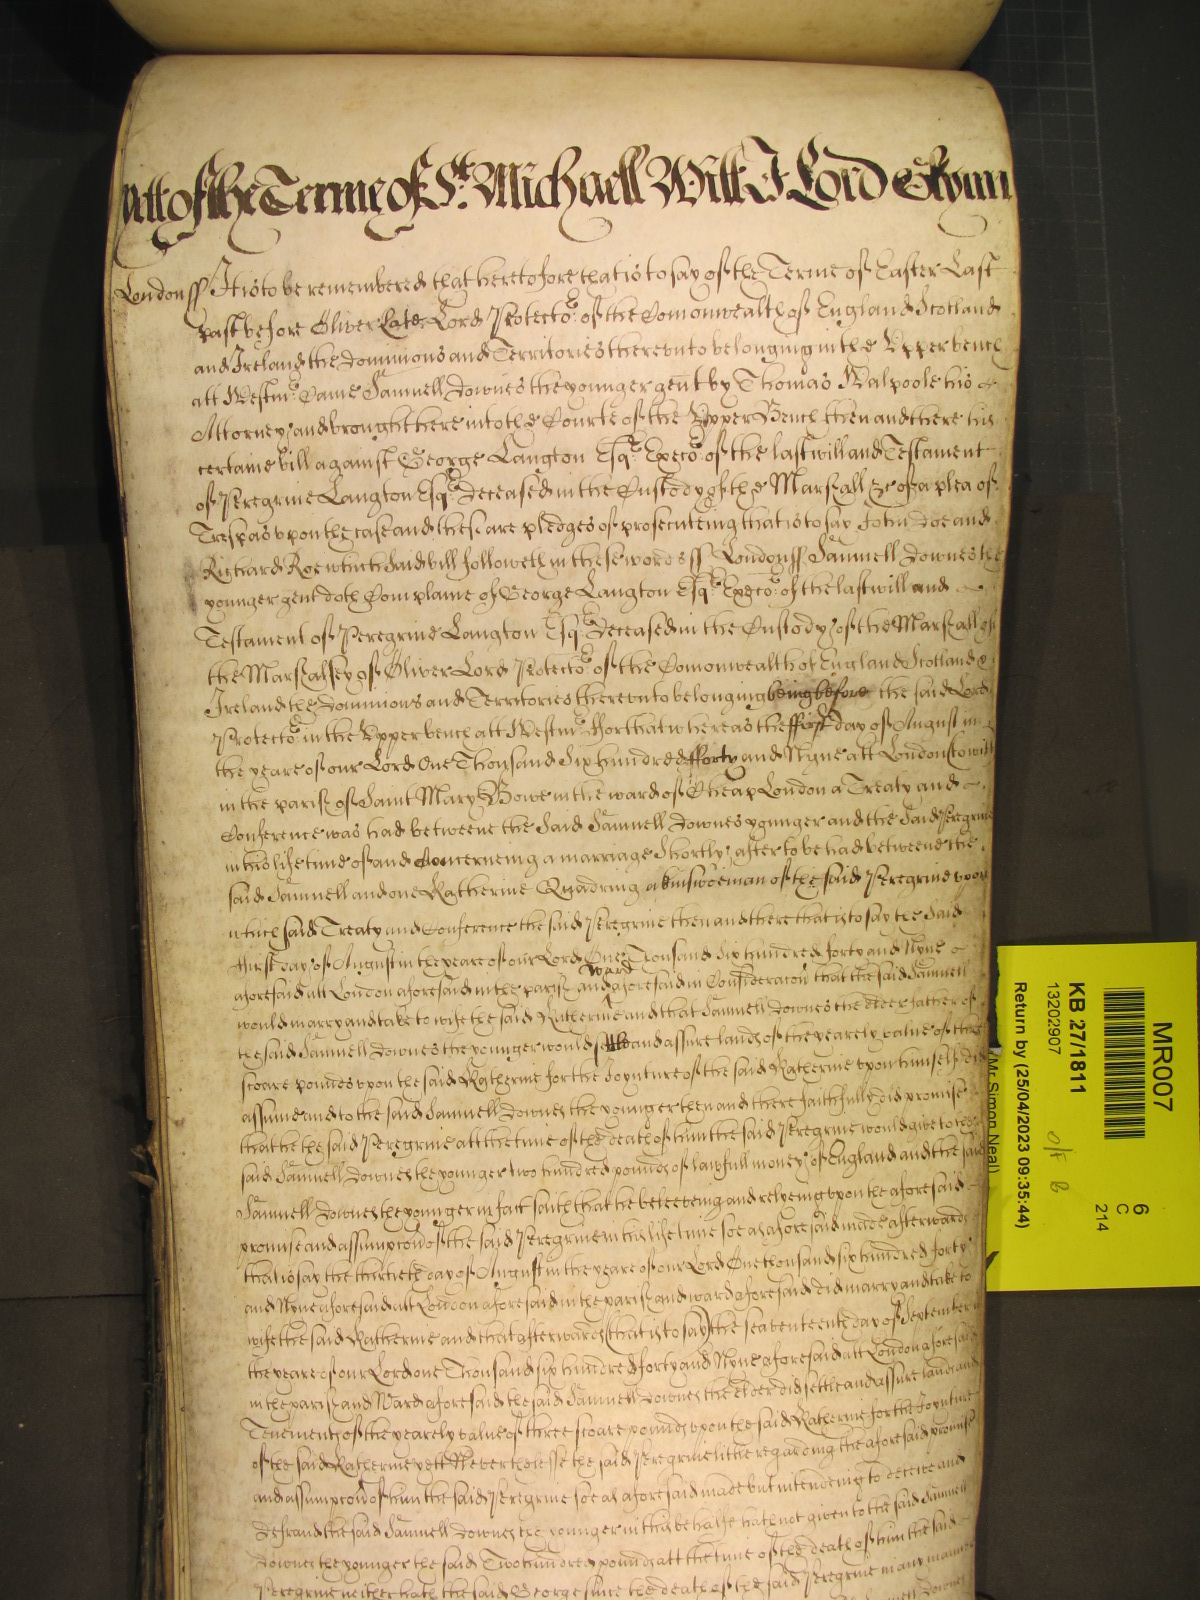 yett of the Terme of St. Michaell Witt J Lord Skynn
London ss It is to be remembered that heretofore that is to say of the Terme of Easter Last
past before Oliver Late Lord Protector of the Comonwealth of England Scotland
and Ireland the Dominions and Territories thereunto belonging in the Upper bench
att Westmr. Came Samuell Downes the younger gent by Thomas Walpoole his
Attorney and brought here into the Courte of the Upper Bench then and there his
certaine bill against George Langton Esqr. Execor. of the last will and Testament
of Peregrine Langton Esqr. deceased in the Custody of the Marshall &c of a plea of
Trespas upon the case and these are pledges of prosecuteing that is to say John Doe and
Richard Roe which said bill followeth in these words ss London ss Samuell Downes the
younger gent doth Complaine of George Langton Esqr. Execor. of the last will and
Testament of Peregrine Langton Esqr. deceased in the Custody of the Marshall of
the Marshalsey of Oliver Lord Protector of the Comonwealth of England Scotland &
Ireland the Dominions and Territories thereunto belonging being before the said Lord
Protector in the Upper bench att Westmr. For that whereas the first day of August in
the yeare of our Lord One Thousand Six hundred forty and Nyne att London to witt
in the parish of Saint Mary Bowe in the ward of Cheap London a Treaty and
Conference was had betweene the said Samuell Downes younger and the said Peregrine
in his life time of and Concerneing a marriage Shortly after to be had betweene the
said Samuell and one Katherine Quadring a kinswoeman of the said Peregrine upon
which said Treaty and Conference the said Peregrine then and there that is to say the said
first day of August in the yeare of our Lord One Thousand Six hundred forty and Nyne
ward
aforesaid att London aforesaid in the parish and aforesaid in Consideracon that the said Samuell
would marry and take to wife the said Katherine and that Samuell Downes the elder father of
the said Samuell Downes the younger would settle and assure lands of the yearely value of three
scoare pounds upon the said Katherine for the Joynture of the said Katherine upon himselfe did
assume and to the said Samuell Downes the younger then and there faithfully did promise
that he the said Peregrine att the time of the death of him the said Peregrine would give to the
said Samuell Downes the younger two hundred pounds of lawfull money of England and the said
Samuell Downes the younger in fact saith that he beleeveing and relyeing upon the aforesaid
promise and assumpcon of the said Peregrine in his life time soe as aforesaid made afterwards
that is say the thirtieth day of August in the yeare of our Lord One thousand six hundred forty
and Nyne aforesaid att London aforesaid in the parish and ward aforesaid did marry and take to
wife the said Katherine and that afterwards (that is to say) the seaventeenth day of September
the yeare of our Lord one Thousand six hundred forty and Nyne aforesaid att London aforesaid
in the parish and Ward aforesaid the said Samuell Downes the elder did settle and assure lands and
Tenements of the yearely value of three scoare pounds upon the said Katherine for the Joynture
of the said Katherine yett Neverthelesse the said Peregrine little regarding the aforesaid promise
and assumpcon of him the said Peregrine soe as aforesaid made but intendeing to deceive and
defraud the said Samuell Downes the younger in this behalfe hath not given to the said Samuell
Downes the younger the said Two hundred pounds att the time of the death of him the said
Peregrine neither hath the said George since the death of the said Peregrine in any manner
MR007
KB 27/1811
13202907
Return by (25/04/2023 09:35:44)
(Mr Simon Neal)
6
C
214